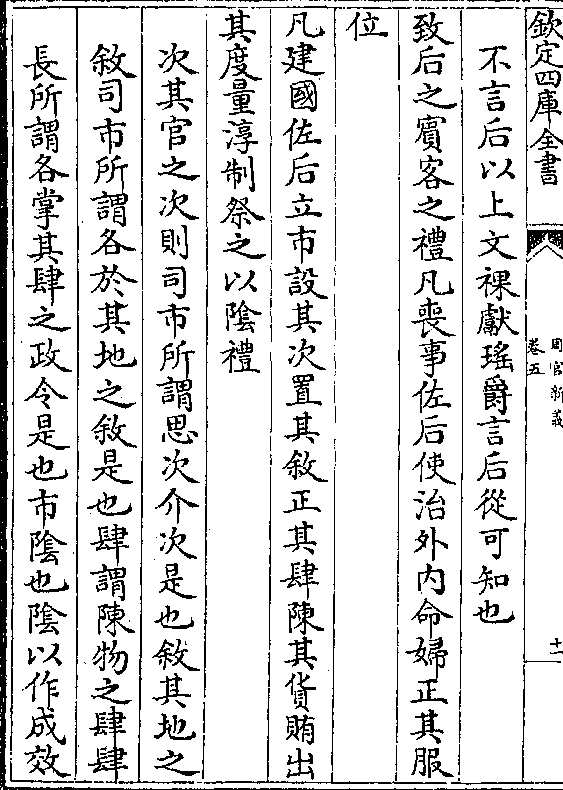 欽定四庫全書
周官新義
卷五
十一
不言后以上文祼獻瑤爵言后從可知也
致后之賓客之禮凡喪事佐后使治外内命婦正其服
位
凡建國佐后立市設其次置其敘正其肆陳其貨賄出
其度量淳制祭之以陰禮
次其官之次則司市所謂思次介次是也敘其地之
敘司市所謂各於其地之敘是也肆謂陳物之肆肆
長所謂各掌其肆之政令是也市陰也陰以作成效